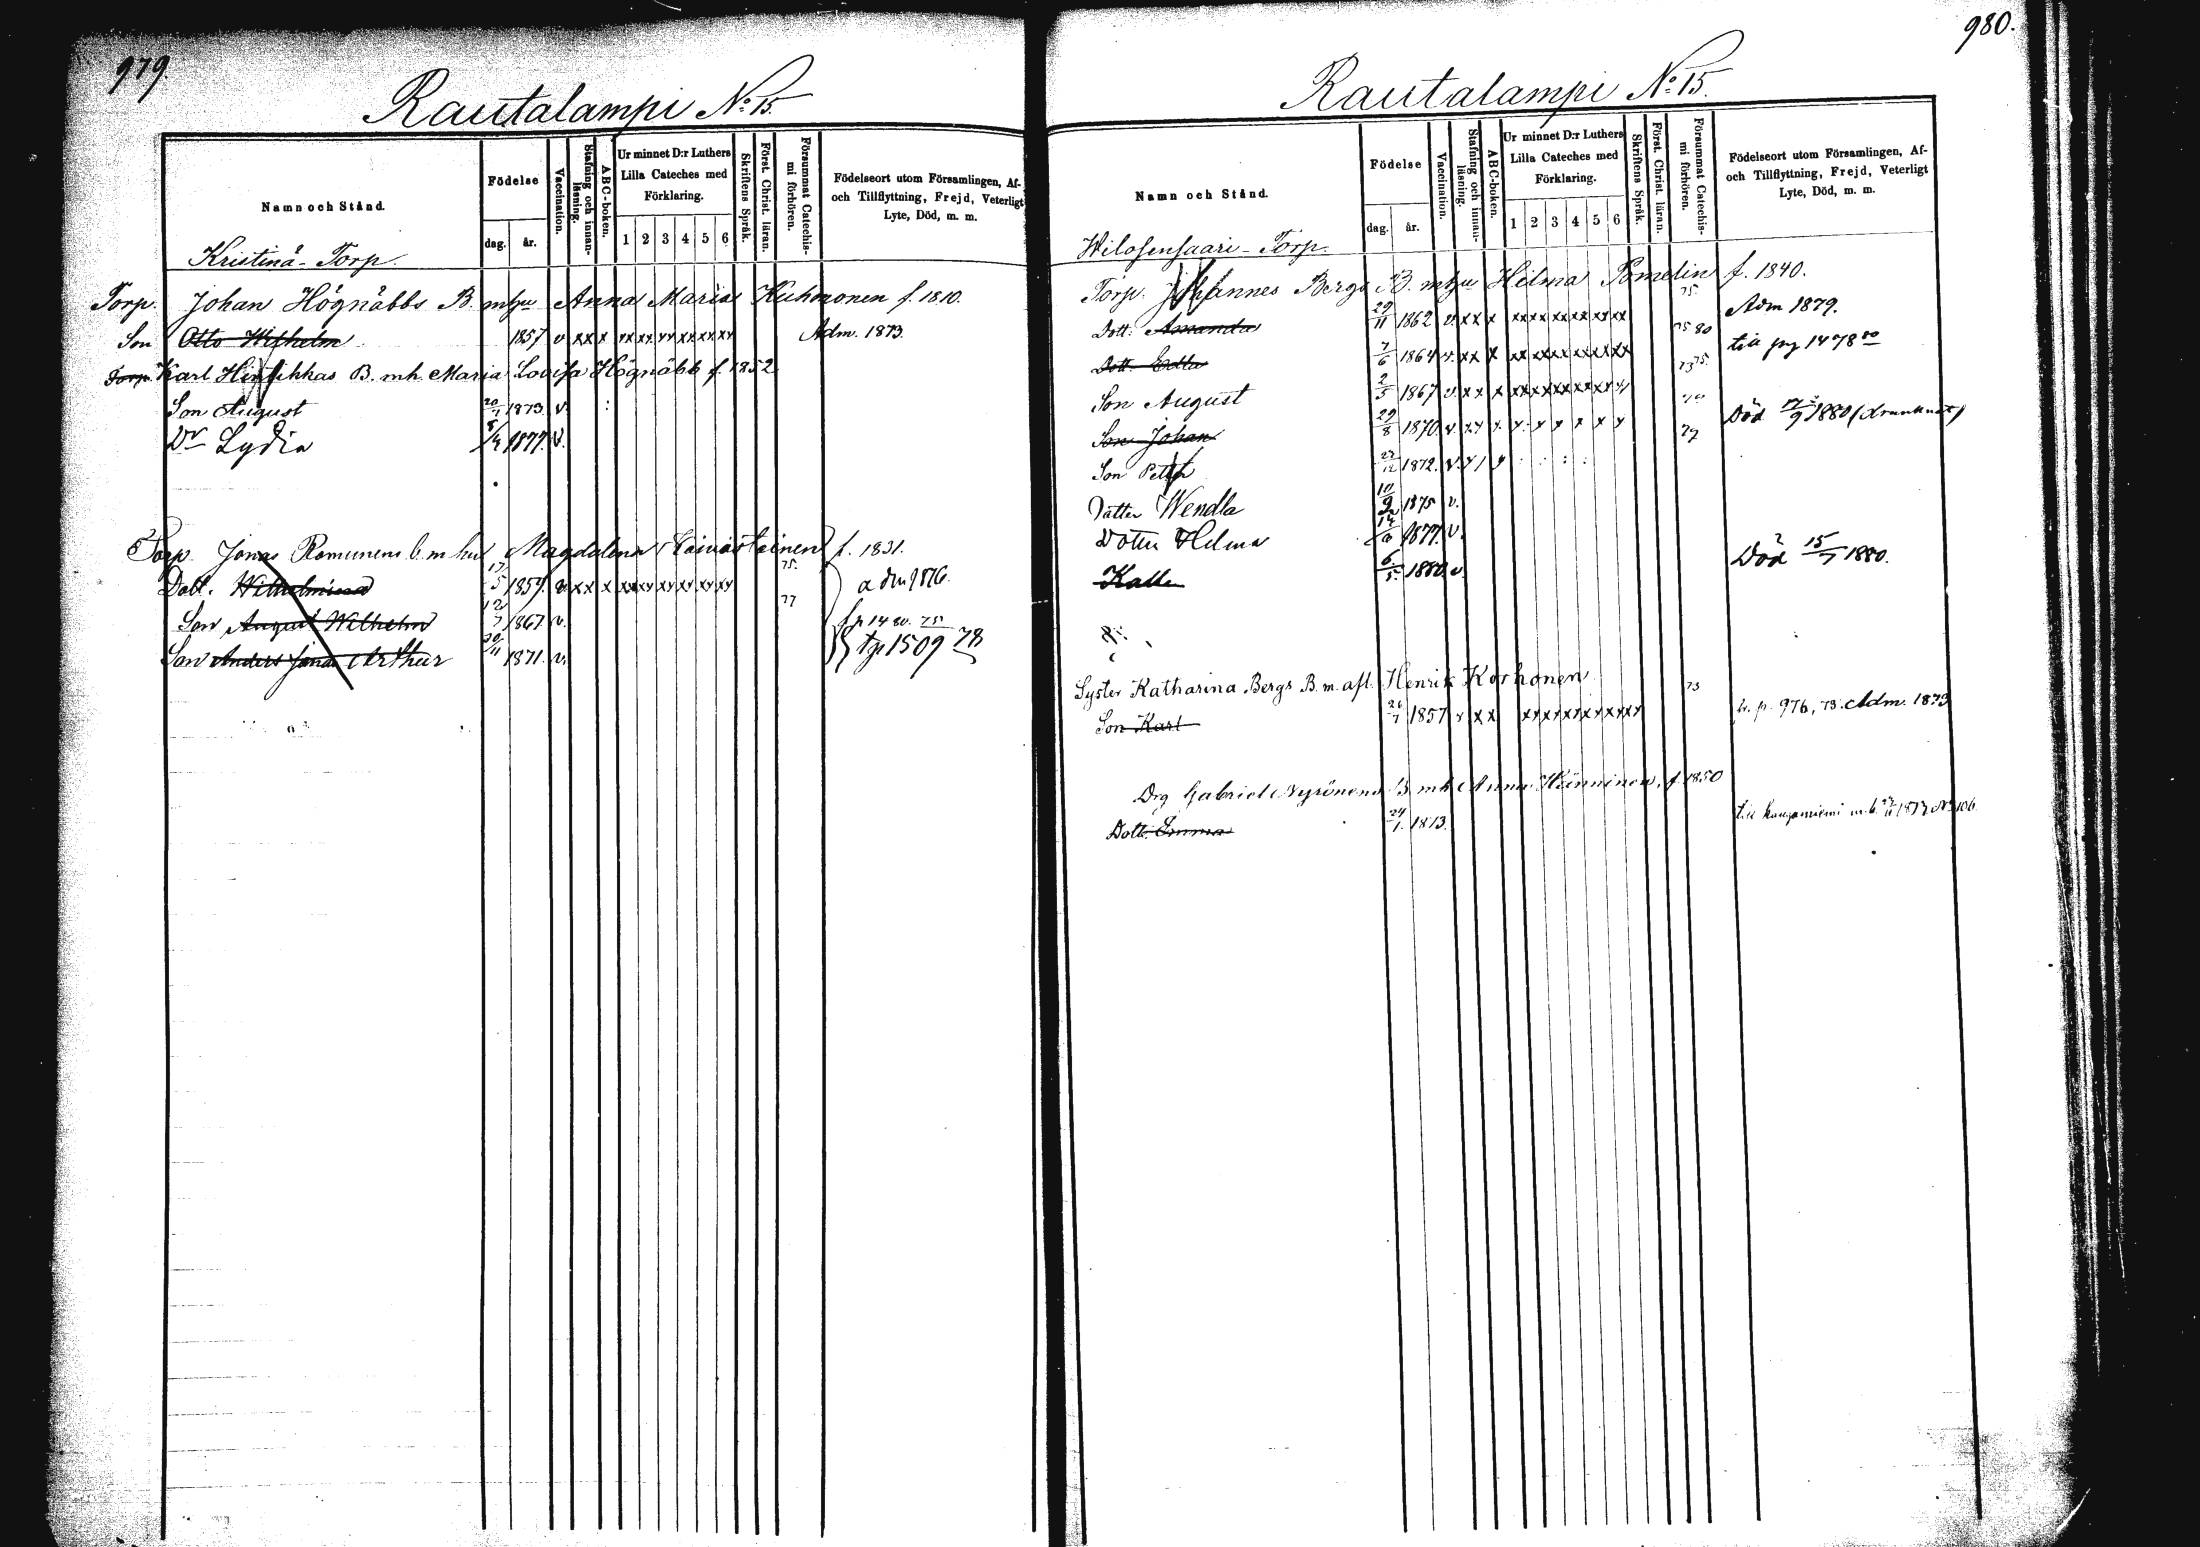 979
Rautalampi No 15.
Namn och Stånd.
Födelse
dag. år.
Vaccination.
Stafning och innanläsning.
ABC-boken.
Ur minnet D:r Luthers Lilla Cateches med Förklaring.
1 2 3 4 5 6
Skriftens Språk.
Först. Christ. läran.
Försummat Catechismi förhören.
Födelseort utom Församlingen, Af- och Tillflyttning, Frejd, Veterligt Lyte, Död, m. m.
Kristinä-Torp.
Torp. Johan Högnäbbs B. mhu Anna Maria Kuhmonen f. 1810.
Son Otto Wilhelm 1857 v xx x xx xx xx xx xx xx Adm. 1873.
Torp. Karl Hinrikkas B. mh. Maria Lovisa Högnäbb f. 1852
Son August 20/1 1873. v.
Dr Lydia 1877. v.
Torp. Jonas Romunens b. m hu Magdalena f. 1831.
Dott. Wilhelmina 17/5 1859. v xx x xx xx xx xx xx xx 75. adm 1876.
Son August Wilhelm 12/7 1867 v. 77 fp 1480. 75
Son Anders Jonas Arthur 20/11 1871. v. tp 1509 78
980.
Rautalampi No 15.
Namn och Stånd.
Födelse
dag. år.
Vaccination.
Stafning och innanläsning.
ABC-boken.
Ur minnet D:r Luthers Lilla Cateches med Förklaring.
1 2 3 4 5 6
Skriftens Språk.
Först. Christ. läran.
Försummat Catechismi förhören.
Födelseort utom Församlingen, Af- och Tillflyttning, Frejd, Veterligt Lyte, Död, m. m.
Wilosensaari-Torp.
Torp. Johannes Bergs B. mhu Hilma Pomelin f. 1840.
Dott. Amanda 29/11 1862 v. xx x xx xx xx xx xx xx 75. Adm 1879.
Dott. Edla 7/6 1864 v. xx x xx xx xx xx xx xx 75 80 till pag 1478 80
Son August 2/5 1867 v. xx x xx xx xx xx xx 73 75.
Son Johan 29/8 1870. v. xx x x x x x x x Död 17/9 1880 (drunknat)
Son Petter 27/12 1872. v. 79
Dotter Wendla 10/9 1875 v.
Dotter Helma 1877. v.
Kalle 6/5 1880. v. Död 15/7 1880.
Syster Katharina Bergs B. m. afl. Henrik Korhonen
Son Karl 26/7 1857 v xx xx xx xx xx xx xx 73 tr. p. 976, 73. Adm. 1873
Drg Gabriel Nyrönens B mh Anna Hänninen, f. 1850
Dott. Emma 24/1. 1873. till kangasniemi m. b. 1877 No 106.